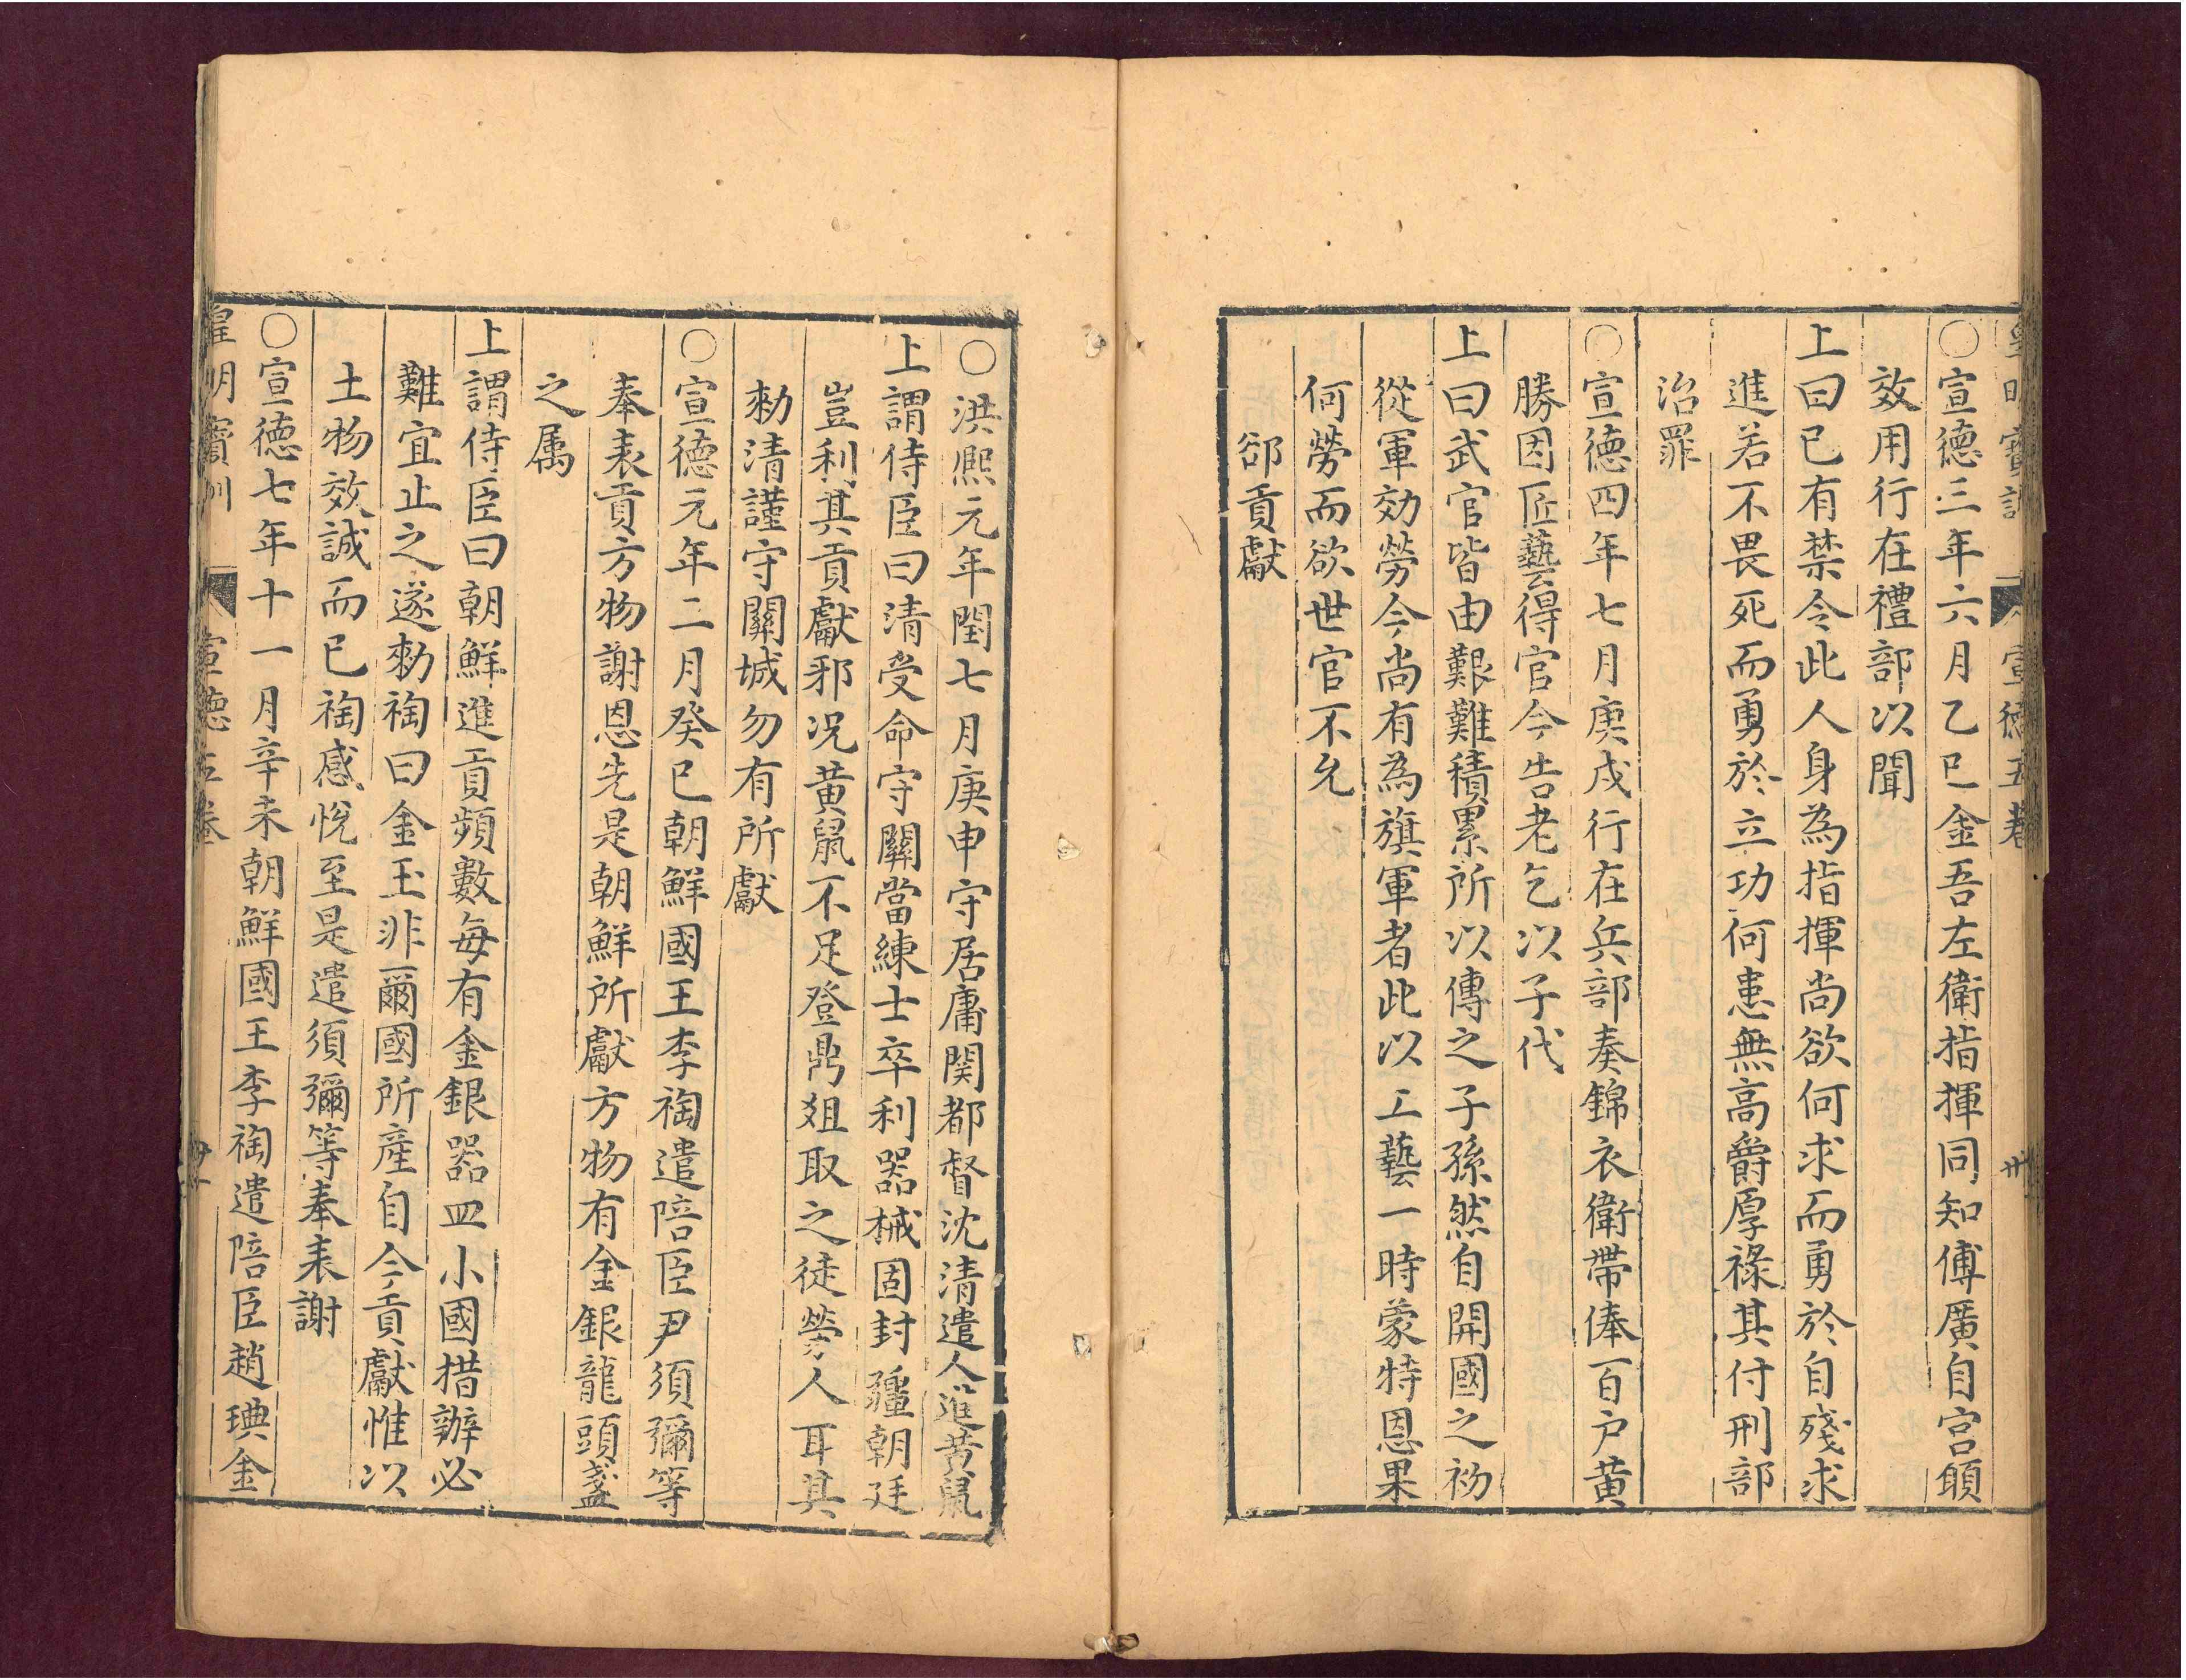 皇明寶訓 宣德五卷 卅
〇宣德三年六月乙巳金吾左衛指揮同知傅廣自宮願
效用行在禮部以聞
上曰已有禁令此人身為指揮尚欲何求而勇於自殘求
進若不畏死而勇於立功何患無高爵厚祿其付刑部
治罪
〇宣德四年七月庚戌行在兵部奏錦衣衛帶俸百戶黃
勝因匠藝得官今告老乞以子代
上曰武官皆由艱難積累所以傳之子孫然自開國之初
從軍効勞今尚有為旗軍者此以工藝一時蒙特恩果
何勞而欲世官不允
卻貢獻
〇洪熙元年閏七月庚申守居庸関都督沈清遣人進黃鼠
上謂侍臣曰清受命守關當練士卒利器械固封疆朝廷
豈利其貢獻邪況黃鼠不足登鼎俎取之徒勞人耳其
勑清謹守關城勿有所獻
〇宣德元年二月癸巳朝鮮國王李祹遣陪臣尹須彌等
奉表貢方物謝恩先是朝鮮所獻方物有金銀龍頭盞
之属
上謂侍臣曰朝鮮進貢頻數每有金銀器皿小國措辦必
難宜止之遂勑祹曰金玉非爾國所產自今貢獻惟以
土物效誠而已祹感悅至是遣須彌等奉表謝
〇宣德七年十一月辛未朝鮮國王李祹遣陪臣趙琠金
皇明寶訓 宣德五卷